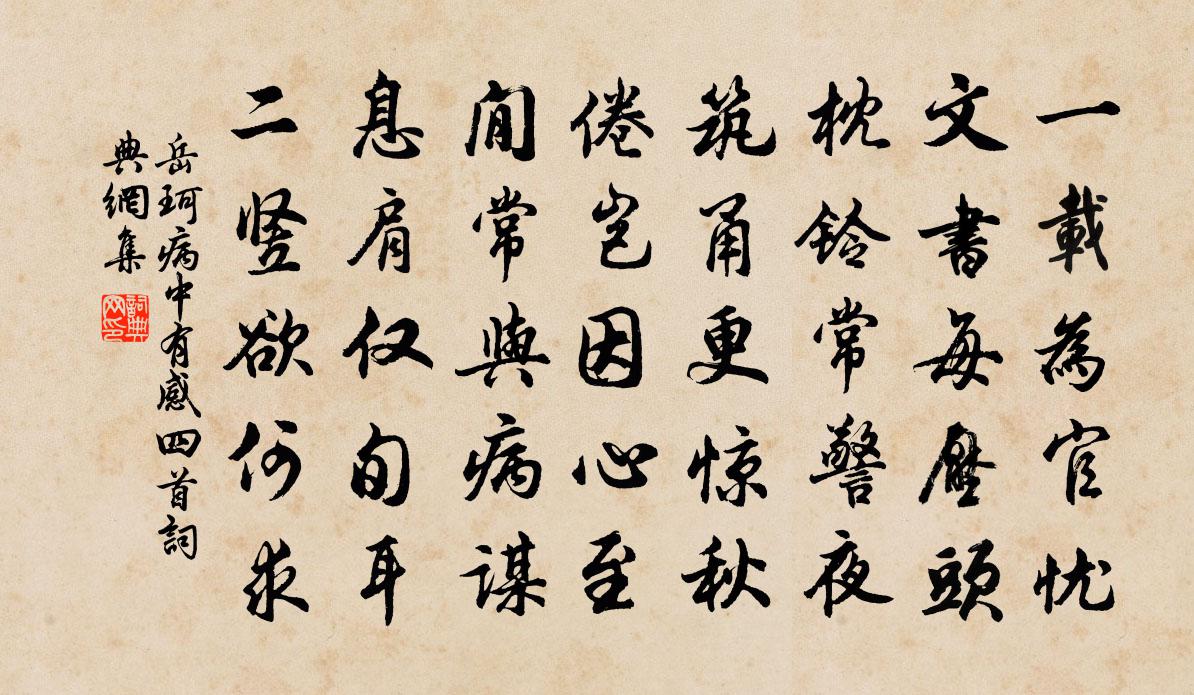 一載為官忧
文書每壓頭
枕鈴常警夜
筑甬更惊秋
倦豈因心至
閒常與病謀
息肩仅旬耳
二竖欲何求
岳珂病中有感四首詞
典網集
詞典网印